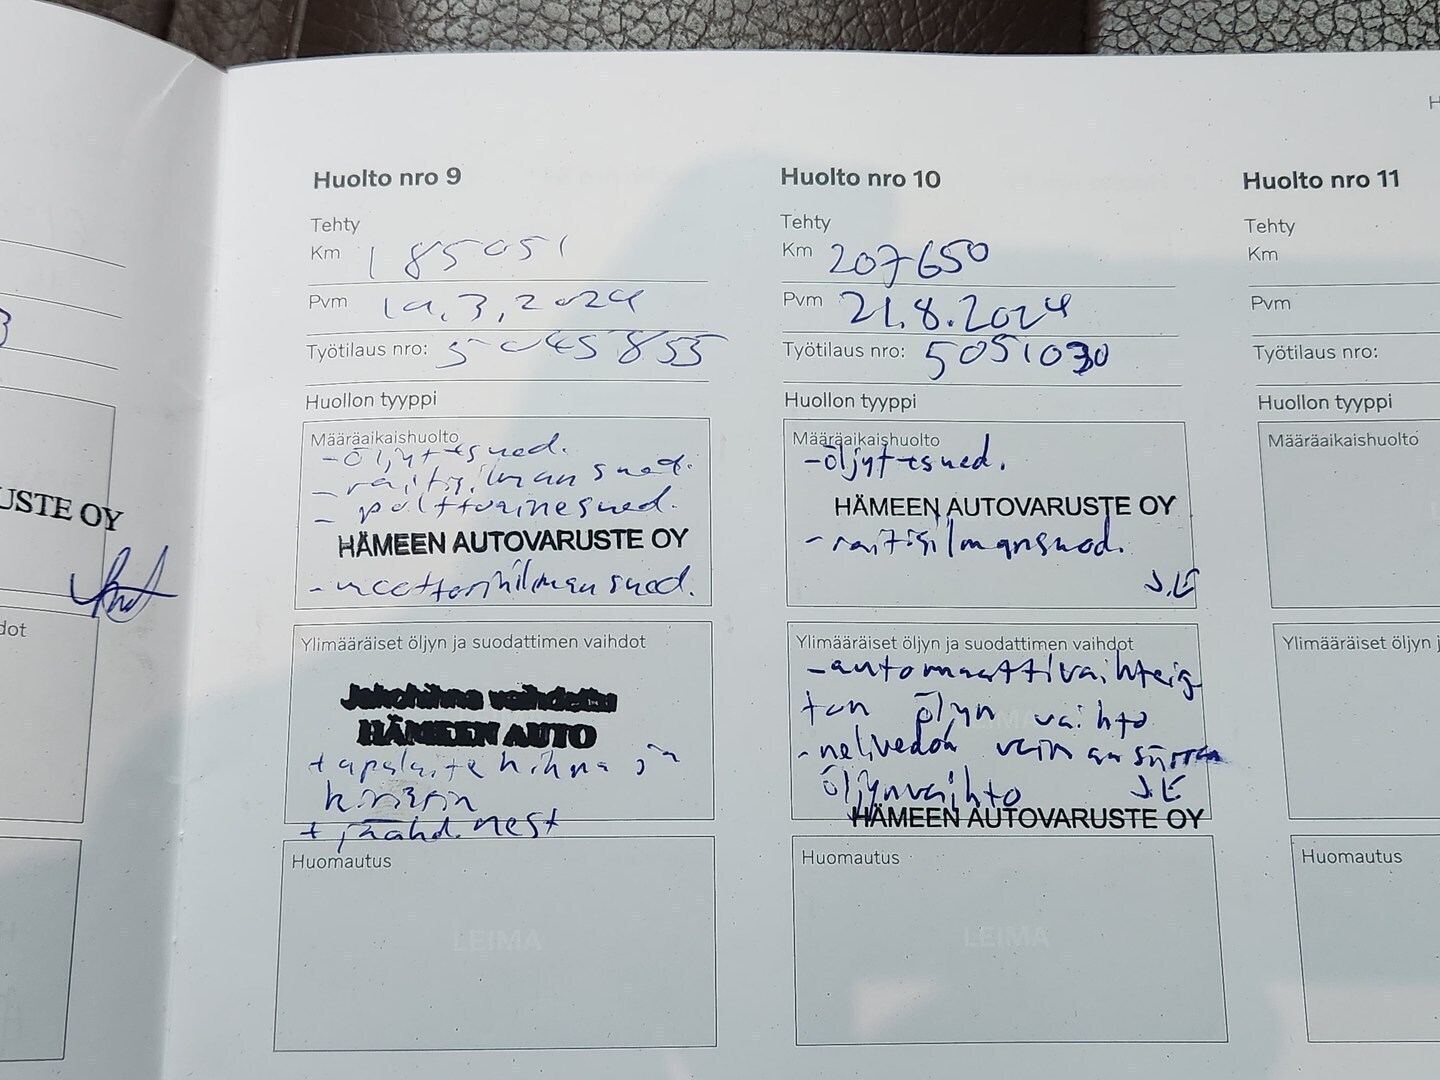 USTE OY
dot
Huolto nro 9
Tehty
Km 185051
Pvm 19.3.2024
Työtilaus nro: 5045855
Huollon tyyppi
Määräaikaishuolto
-öljyt+sued.
-raitisilmansuod.
- polttoainesuod.
HÄMEEN AUTOVARUSTE OY
-moottorinilmansuod.
Ylimääräiset öljyn ja suodattimen vaihdot
Jakohihna vaihdettu
HÄMEEN AUTO
+apulaitehihna ja
kiristin
+jäähd.nest
Huomautus
LEIMA
Huolto nro 10
Tehty
Km 207650
Pvm 21.8.2024
Työtilaus nro: 5051030
Huollon tyyppi
Määräaikaishuolto
-öljyt+sued.
HÄMEEN AUTOVARUSTE OY
-raitisilmansuod.
J.E
Ylimääräiset öljyn ja suodattimen vaihdot
-automaattivaihteis
ton öljyn vaihto
-nelivedon
öljynvaihto J.E
HÄMEEN AUTOVARUSTE OY
Huomautus
LEIMA
Huolto nro 11
Tehty
Km
Pvm
Työtilaus nro:
Huollon tyyppi
Määräaikaishuolto
Ylimääräiset öljyn j
Huomautus